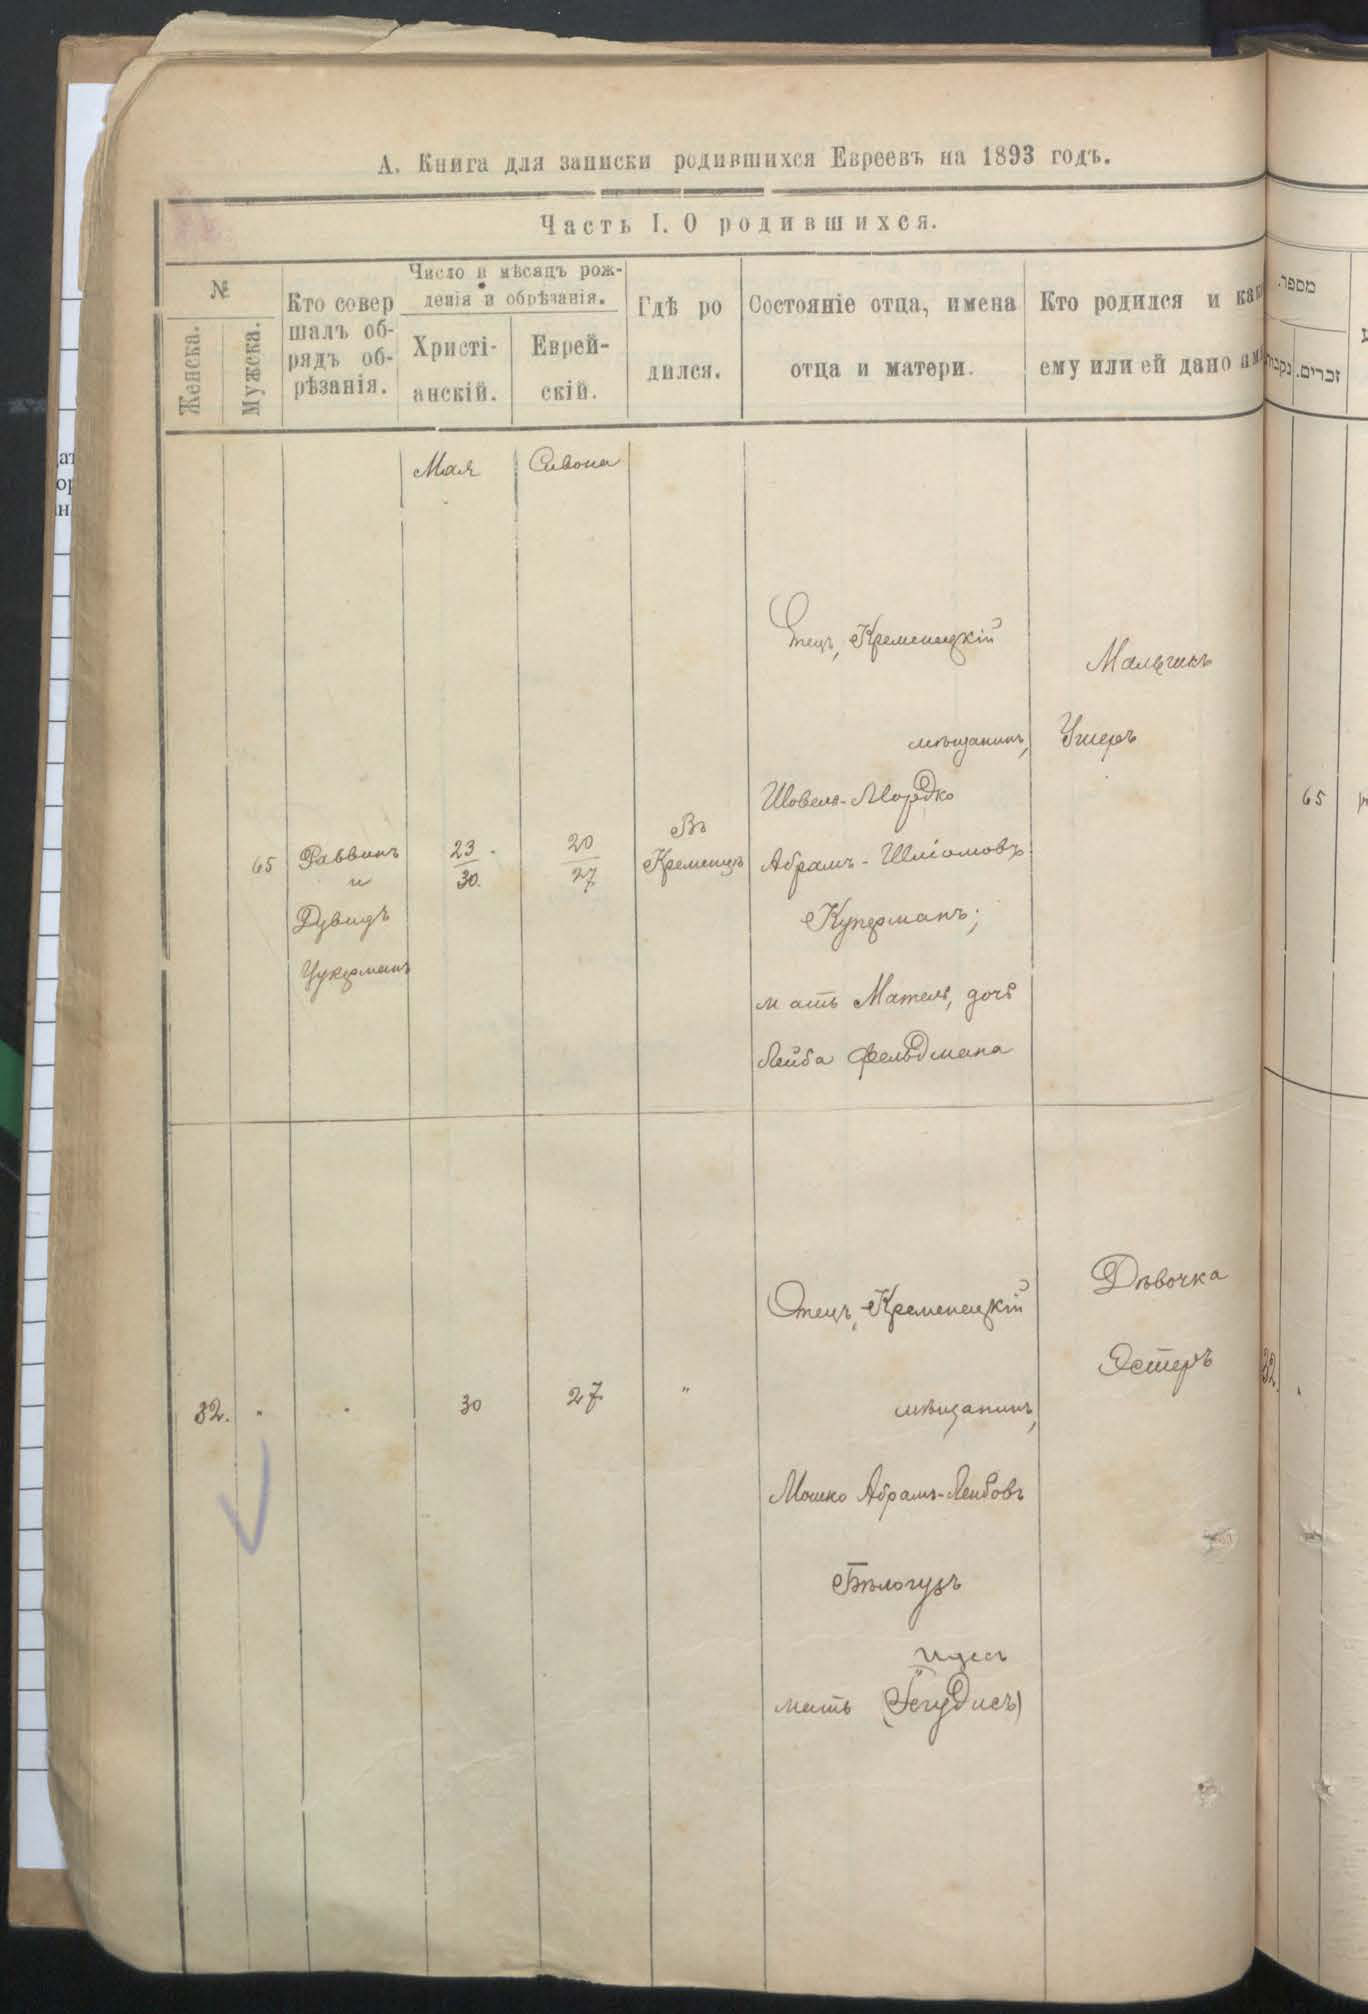 А. Книга для записки родившихся Евреевъ на 1893 годъ.
Часть I. О родившихся.
№
Женска.
Мужска.
Кто совер
шалъ об-
рядъ об-
рѣзанія.
Число и мѣсяцъ рож-
денія и обрѣзанія.
Христі-
анскій.
Еврей-
скій.
Гдѣ ро
дился.
Состояніе отца, имена
отца и матери.
Кто родился и как
ему или ей дано им
מספר.
זכרים.
Мая
Сивона
65
Раввинъ
и
Дувидъ
Цукерманъ
23
30.
20
27
Въ
Кременцѣ
Отецъ, Кременецкій
мѣщанинъ,
Шовель-Мордко
Абрамъ-Шліомовъ
Куперманъ;
мать Мательь, дочь
Лейба Фельдмана
Мальчикъ
Ушеръ
65
32.
30
27
"
Отецъ, Кременецкій
мѣщанинъ,
Мошко Абрамъ-Лейбовъ
Бѣлогузъ
Идесъ
мать (Іегудисъ)
Дѣвочка
Эстеръ
32.